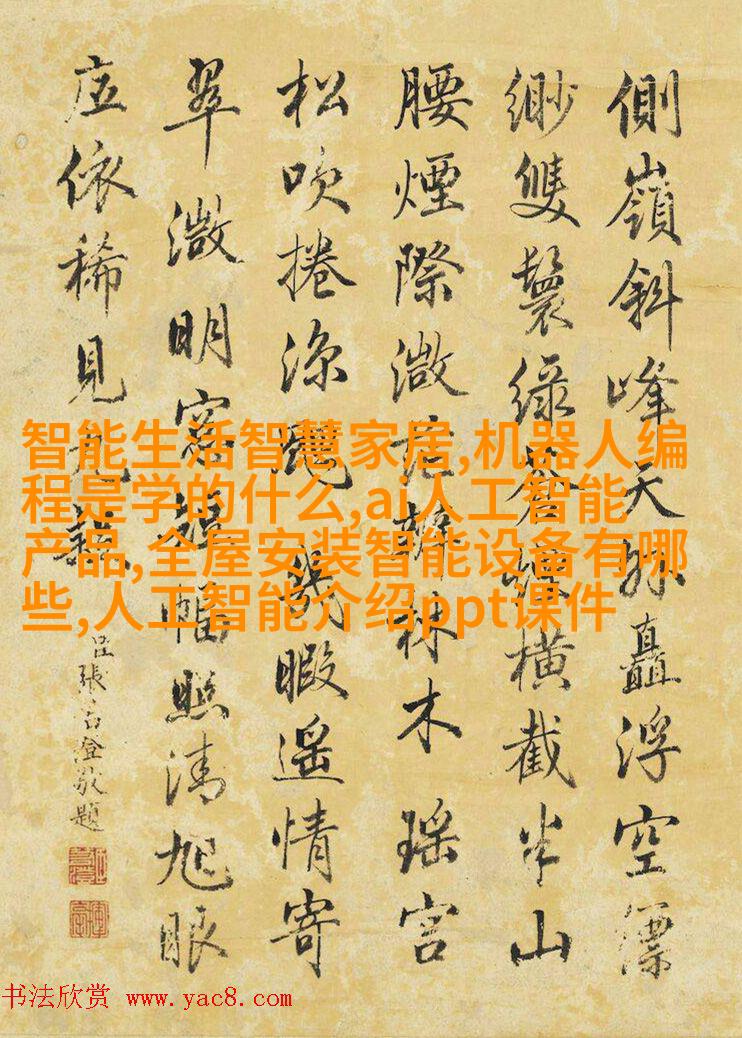 側嶺斜峰天矗浮空縹
緲雙鬟綠橫截半山
腰煙際微茫辨林木瑤宮
松吹捲涼暇遙情寄
翠微明窓幅照清旭眼
底依稀見九龍
臣張若澄敬題
智能生活智慧家居,机器人编
程是学的什么,ai人工智能
产品,全屋安装智能设备有哪
些,人工智能介绍ppt课件
书法欣赏 www.yac8.com